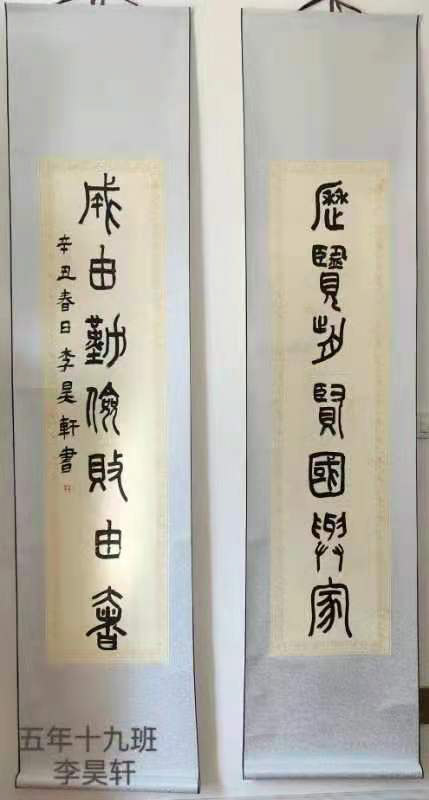 歷覽前賢國與家
成由勤儉敗由奢
辛丑春日李昊軒書
五年十九班
李昊轩